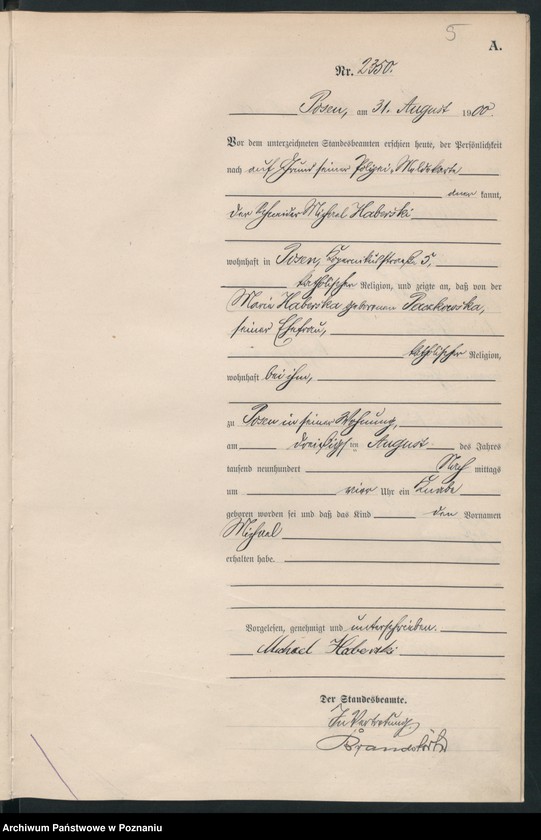 5
A.
Nr. 2350.
Posen, am 31. August 1900.
Vor dem unterzeichneten Standesbeamten erschien heute, der Persönlichkeit
nach auf Grund seiner Polizei-Meldekarte
kannt,
der Schneider Michael Haberski
wohnhaft in Posen, Kopernikusstraße 5,
katholischer Religion, und zeigte an, daß von der
Marie Haberska geborenen Paczkowska,
seiner Ehefrau,
katholischer Religion,
wohnhaft bei ihm,
zu Posen in seiner Wohnung,
am dreißigsten August des Jahres
tausend neunhundert Nachmittags
um vier Uhr ein Knabe
geboren worden sei und daß das Kind den Vornamen
Michael
erhalten habe.
Vorgelesen, genehmigt und unterschrieben.
Michael Haberski
Der Standesbeamte.
In Vertretung.
Archiwum Państwowe w Poznaniu